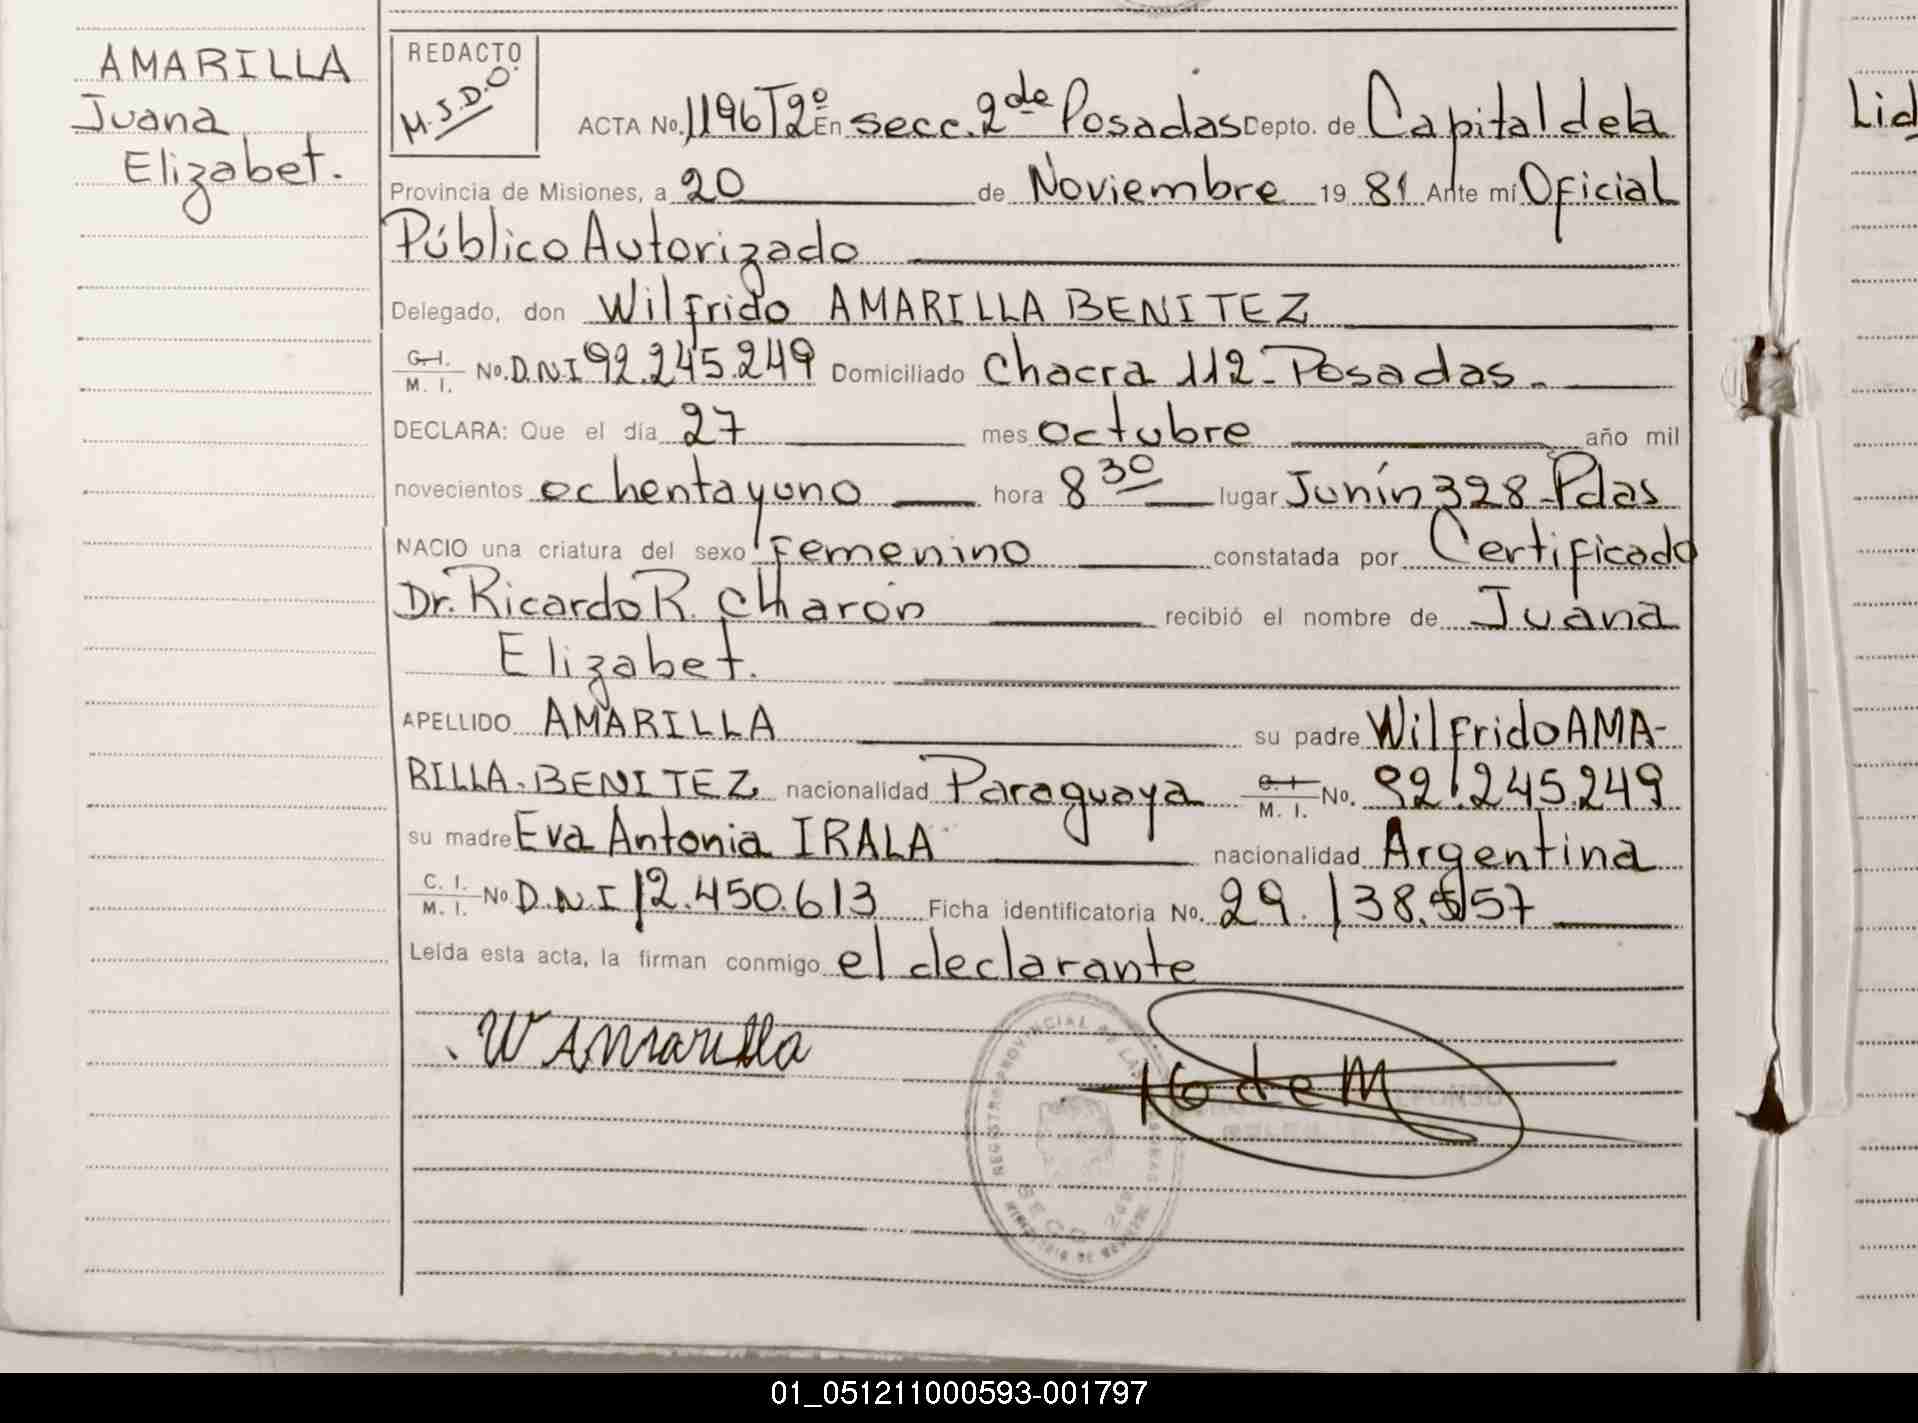 AMARILLA
Juana
Elizabet.
REDACTO
M.J.D.O.
ACTA No. 1196 T2º En secc. 2da Posadas Depto. de Capital de la
Provincia de Misiones, a 20 de Noviembre 19 81 Ante mí Oficial
Público Autorizado
Delegado, don Wilfrido AMARILLA BENITEZ
C. I. M. I. No. D.N.I 92.245.249 Domiciliado Chacra 112 - Posadas.
DECLARA: Que el día 27 mes octubre año mil
novecientos ochenta y uno hora 8 30 lugar Junín 328 - Pdas
NACIO una criatura del sexo femenino constatada por Certificado
Dr. Ricardo R. CHaron recibió el nombre de Juana
Elizabet.
APELLIDO AMARILLA su padre Wilfrido AMA-
RILLA - BENITEZ nacionalidad Paraguaya C. I. M. I. No. 92.245.249
su madre Eva Antonia IRALA nacionalidad Argentina
C. I. M. I. No. D.N.I 12.450.613 Ficha identificatoria No. 29.138.557
Leída esta acta, la firman conmigo el declarante
W Amarilla
REGISTRO PROVINCIAL DE LAS PERSONAS
SECC. 2da
MINISTERIO DE GOBIERNO
Lid
01_051211000593-001797